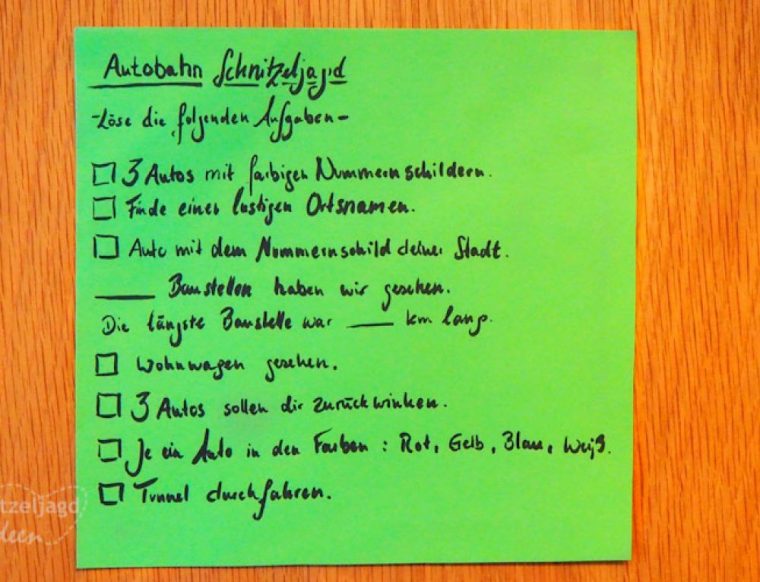 Autobahn Schnitzeljagd
-Löse die folgenden Aufgaben-
3 Autos mit farbigen Nummernschildern.
Finde einen lustigen Ortsnamen.
Auto mit dem Nummernschild deiner Stadt.
____ Baustellen haben wir gesehen.
Die längste Baustelle war ___ km lang.
Wohnwagen gesehen.
3 Autos sollen dir zurückwinken.
Je ein Auto in den Farben: Rot, Gelb, Blau, Weiß.
Tunnel durchfahren.
tzeljagd
deen